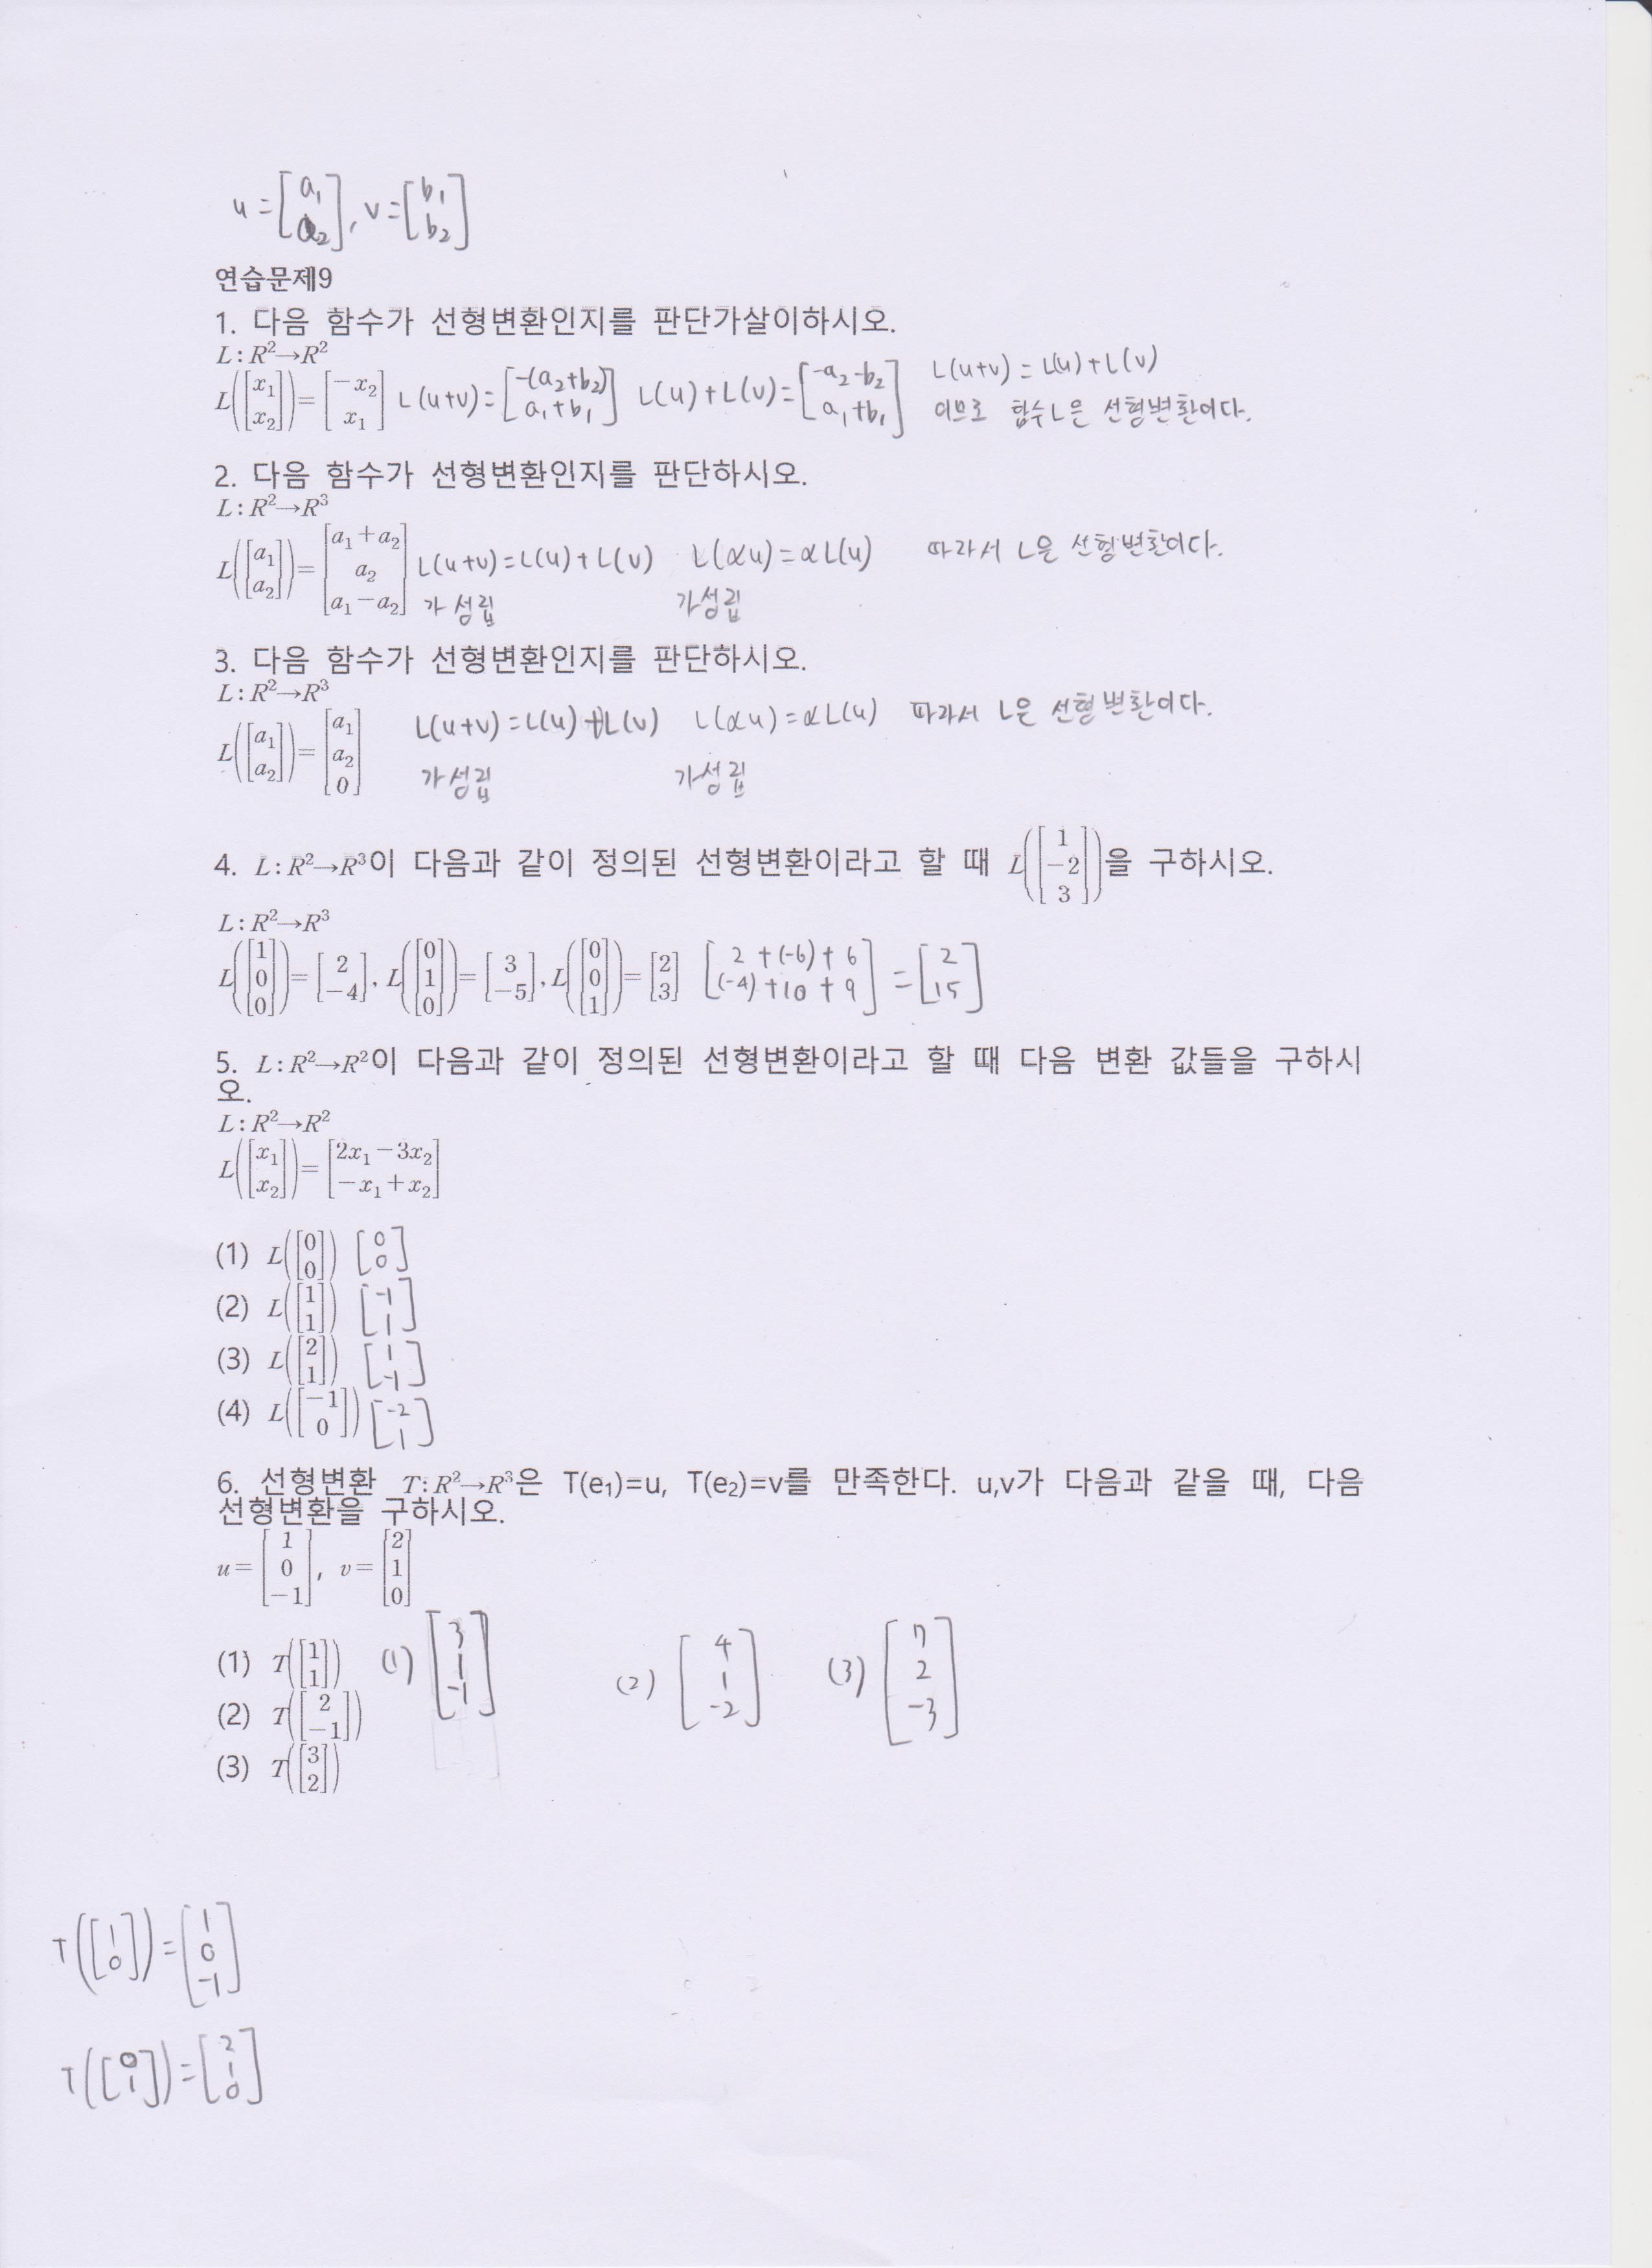 u=[a₁ a₂], v=[b₁ b₂]
연습문제9
1. 다음 함수가 선형변환인지를 판단가살이하시오.
L:R²→R²
L([x₁ x₂])=[-x₂ x₁] L(u+v)=[-(a₂+b₂) a₁+b₁] L(u)+L(v)=[-a₂-b₂ a₁+b₁] L(u+v)=L(u)+L(v)
이므로 함수L은 선형변환이다.
2. 다음 함수가 선형변환인지를 판단하시오.
L:R²→R³
L([a₁ a₂])=[a₁+a₂ a₂ a₁-a₂] L(u+v)=L(u)+L(v) L(αu)=αL(u) 따라서 L은 선형변환이다.
가 성립 가성립
3. 다음 함수가 선형변환인지를 판단하시오.
L:R²→R³
L([a₁ a₂])=[a₁ a₂ 0] L(u+v)=L(u)+L(v) L(αu)=αL(u) 따라서 L은 선형변환이다.
가성립 가성립
4. L:R²→R³이 다음과 같이 정의된 선형변환이라고 할 때 L([1 -2 3])을 구하시오.
L:R²→R³
L([1 0 0])=[2 -4], L([0 1 0])=[3 -5], L([0 0 1])=[2 3] [2+(-6)+6 (-4)+10+9]=[2 15]
5. L:R²→R²이 다음과 같이 정의된 선형변환이라고 할 때 다음 변환 값들을 구하시
오.
L:R²→R²
L([x₁ x₂])=[2x₁-3x₂ -x₁+x₂]
(1) L([0 0]) [0 0]
(2) L([1 1]) [-1 1]
(3) L([2 1]) [1 -1]
(4) L([-1 0]) [-2 1]
6. 선형변환 T:R²→R³은 T(e₁)=u, T(e₂)=v를 만족한다. u,v가 다음과 같을 때, 다음
선형변환을 구하시오.
u=[1 0 -1], v=[2 1 0]
(1) T([1 1]) (1) [3 1 -1] (2) [4 1 -2] (3) [7 2 -3]
(2) T([2 -1])
(3) T([3 2])
T([1 0])=[1 0 -1]
T([0 1])=[2 1 0]